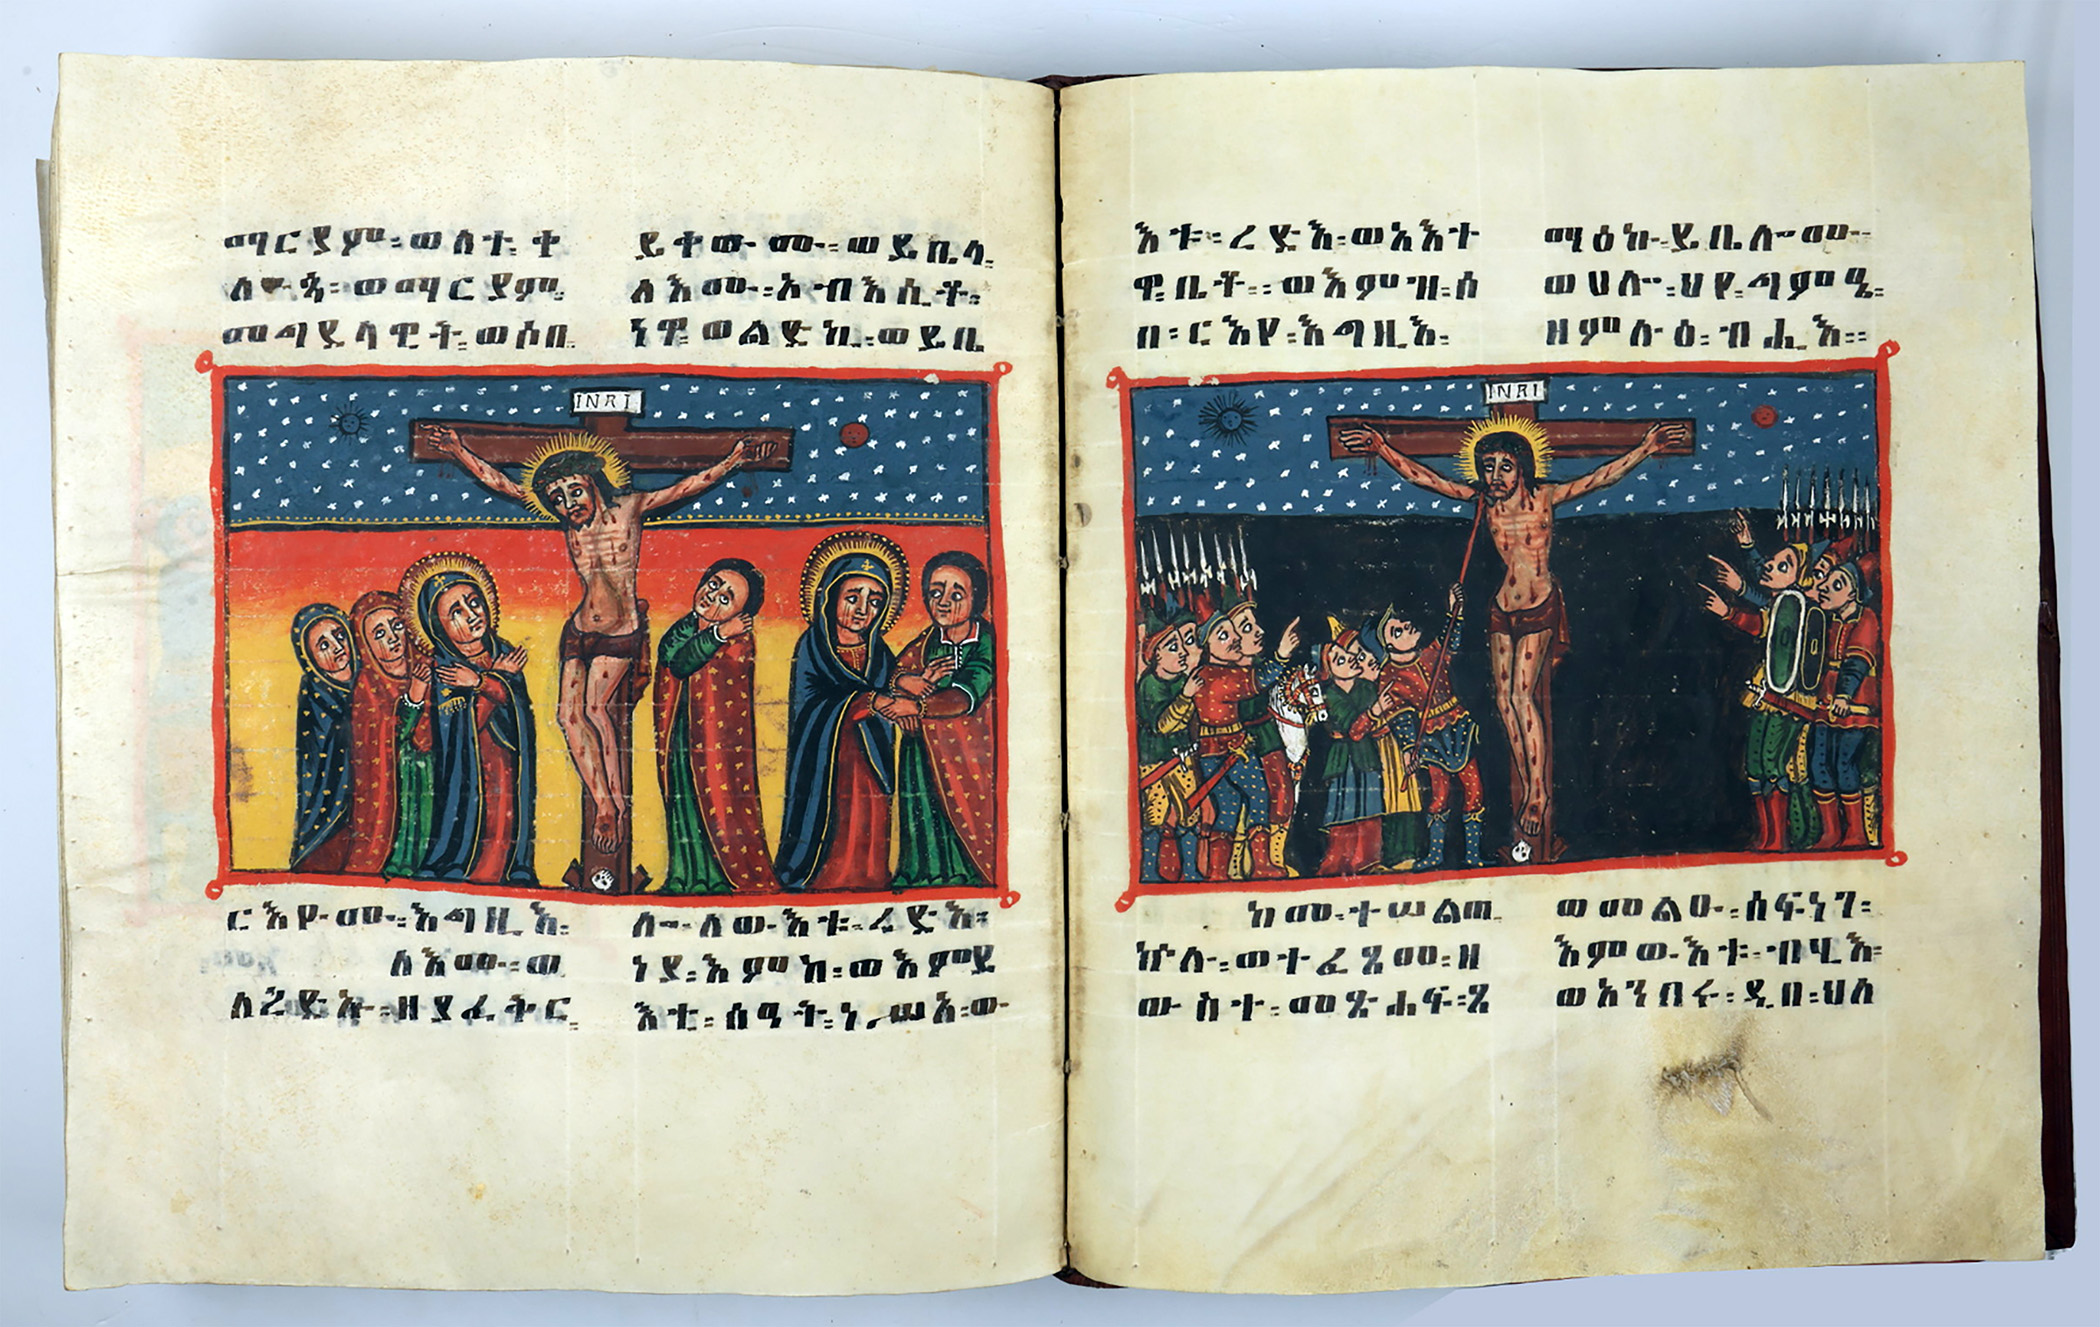 ማርያም፡ወለተ፡ቀ
ለዮጳ፡ወማርያም
መግደላዊት፡ወሶበ
INRI
ርእዮሙ፡እግዚእ፡
ለእሙ፡ወ
ለረድኡ፡ዘያፈቅር
ይቀውሙ፡ወይቤላ፡
ለእሙ፡አብእሲቶ፡
ነዋ፡ወልድኪ፡ወይቤ
ሎ፡ለውእቱ፡ረድእ፡
ነያ፡እምከ፡ወእምይ
እቲ፡ሰዓት፡ነሥአ፡ው
እቱ፡ረድእ፡ወአእተ
ዋ፡ቤቶ፡፡ወእምዝ፡ሶ
በ፡ርእየ፡እግዚእ፡
INRI
ከመ፡ተሠልጠ
ኵሉ፡ወተፈጸመ፡ዘ
ውስተ፡መጽሐፍ፡ጸ
ማዕኩ፡ይቤሎሙ፡
ወሀሎ፡ህየ፡ግምዔ፡
ዘምሉዕ፡ብሒእ፡፡
ወመልዑ፡ሰፍነገ፡
እምውእቱ፡ብሂእ፡
ወአንበሩ፡ዲበ፡ህለ